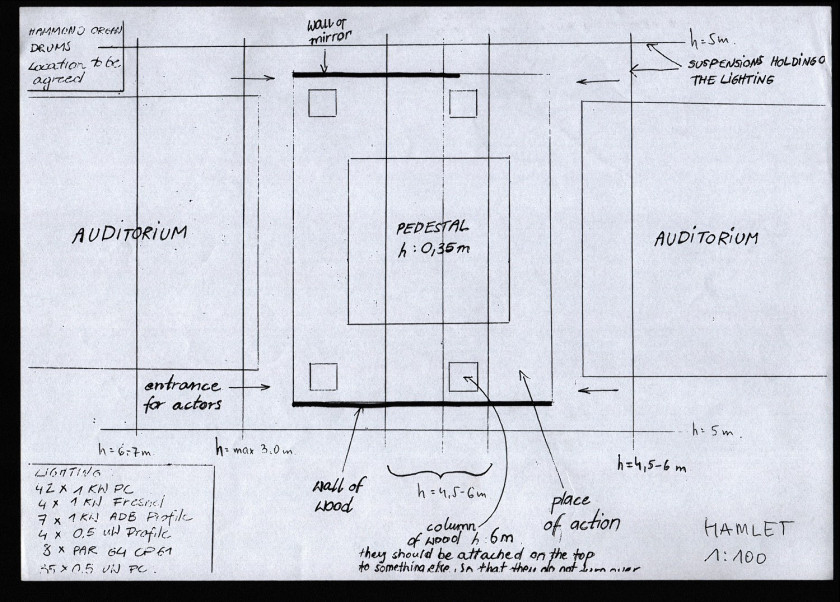 HAMMOND ORGAN
DRUMS
Location to be
agreed
wall of
mirror
h=5m.
SUSPENSIONS HOLDING
THE LIGHTING
AUDITORIUM
PEDESTAL
h: 0,35m
AUDITORIUM
entrance
for actors
h=5m.
h=6-7m
h=max 3.0m.
h=4,5-6m
wall of
wood
h=4,5-6m
place
of action
column
of wood h 6m
they should be attached on the top
to something else, so that they do not turn over
LIGHTING
42 x 1 KW PC
4 x 1 KW Fresnel
7 x 1 KW ADB Profile
4 x 0,5 kW Profile
8 x PAR 64 CP61
x 0.5 kW PC.
HAMLET
1:100